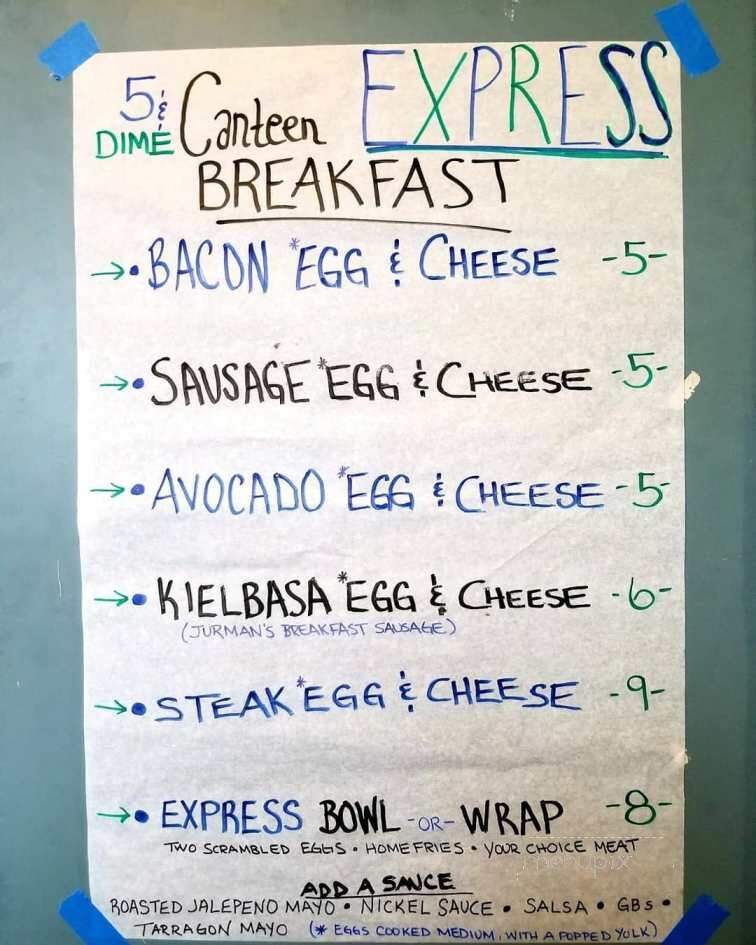 5 & DIME Canteen EXPRESS
BREAKFAST
→• BACON *EGG & CHEESE -5-
→• SAUSAGE *EGG & CHEESE -5-
→• AVOCADO *EGG & CHEESE -5-
→• KIELBASA *EGG & CHEESE -6-
(JURMAN'S BREAKFAST SAUSAGE)
→• STEAK *EGG & CHEESE -9-
→• EXPRESS BOWL -OR- WRAP -8-
TWO SCRAMBLED EGGS • HOMEFRIES • YOUR CHOICE MEAT
ADD A SAUCE
ROASTED JALEPENO MAYO • NICKEL SAUCE • SALSA • GBS •
TARRAGON MAYO (* EGGS COOKED MEDIUM, WITH A POPPED YOLK)